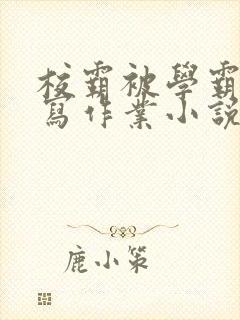 校霸被學霸
寫作業小說
鹿小策